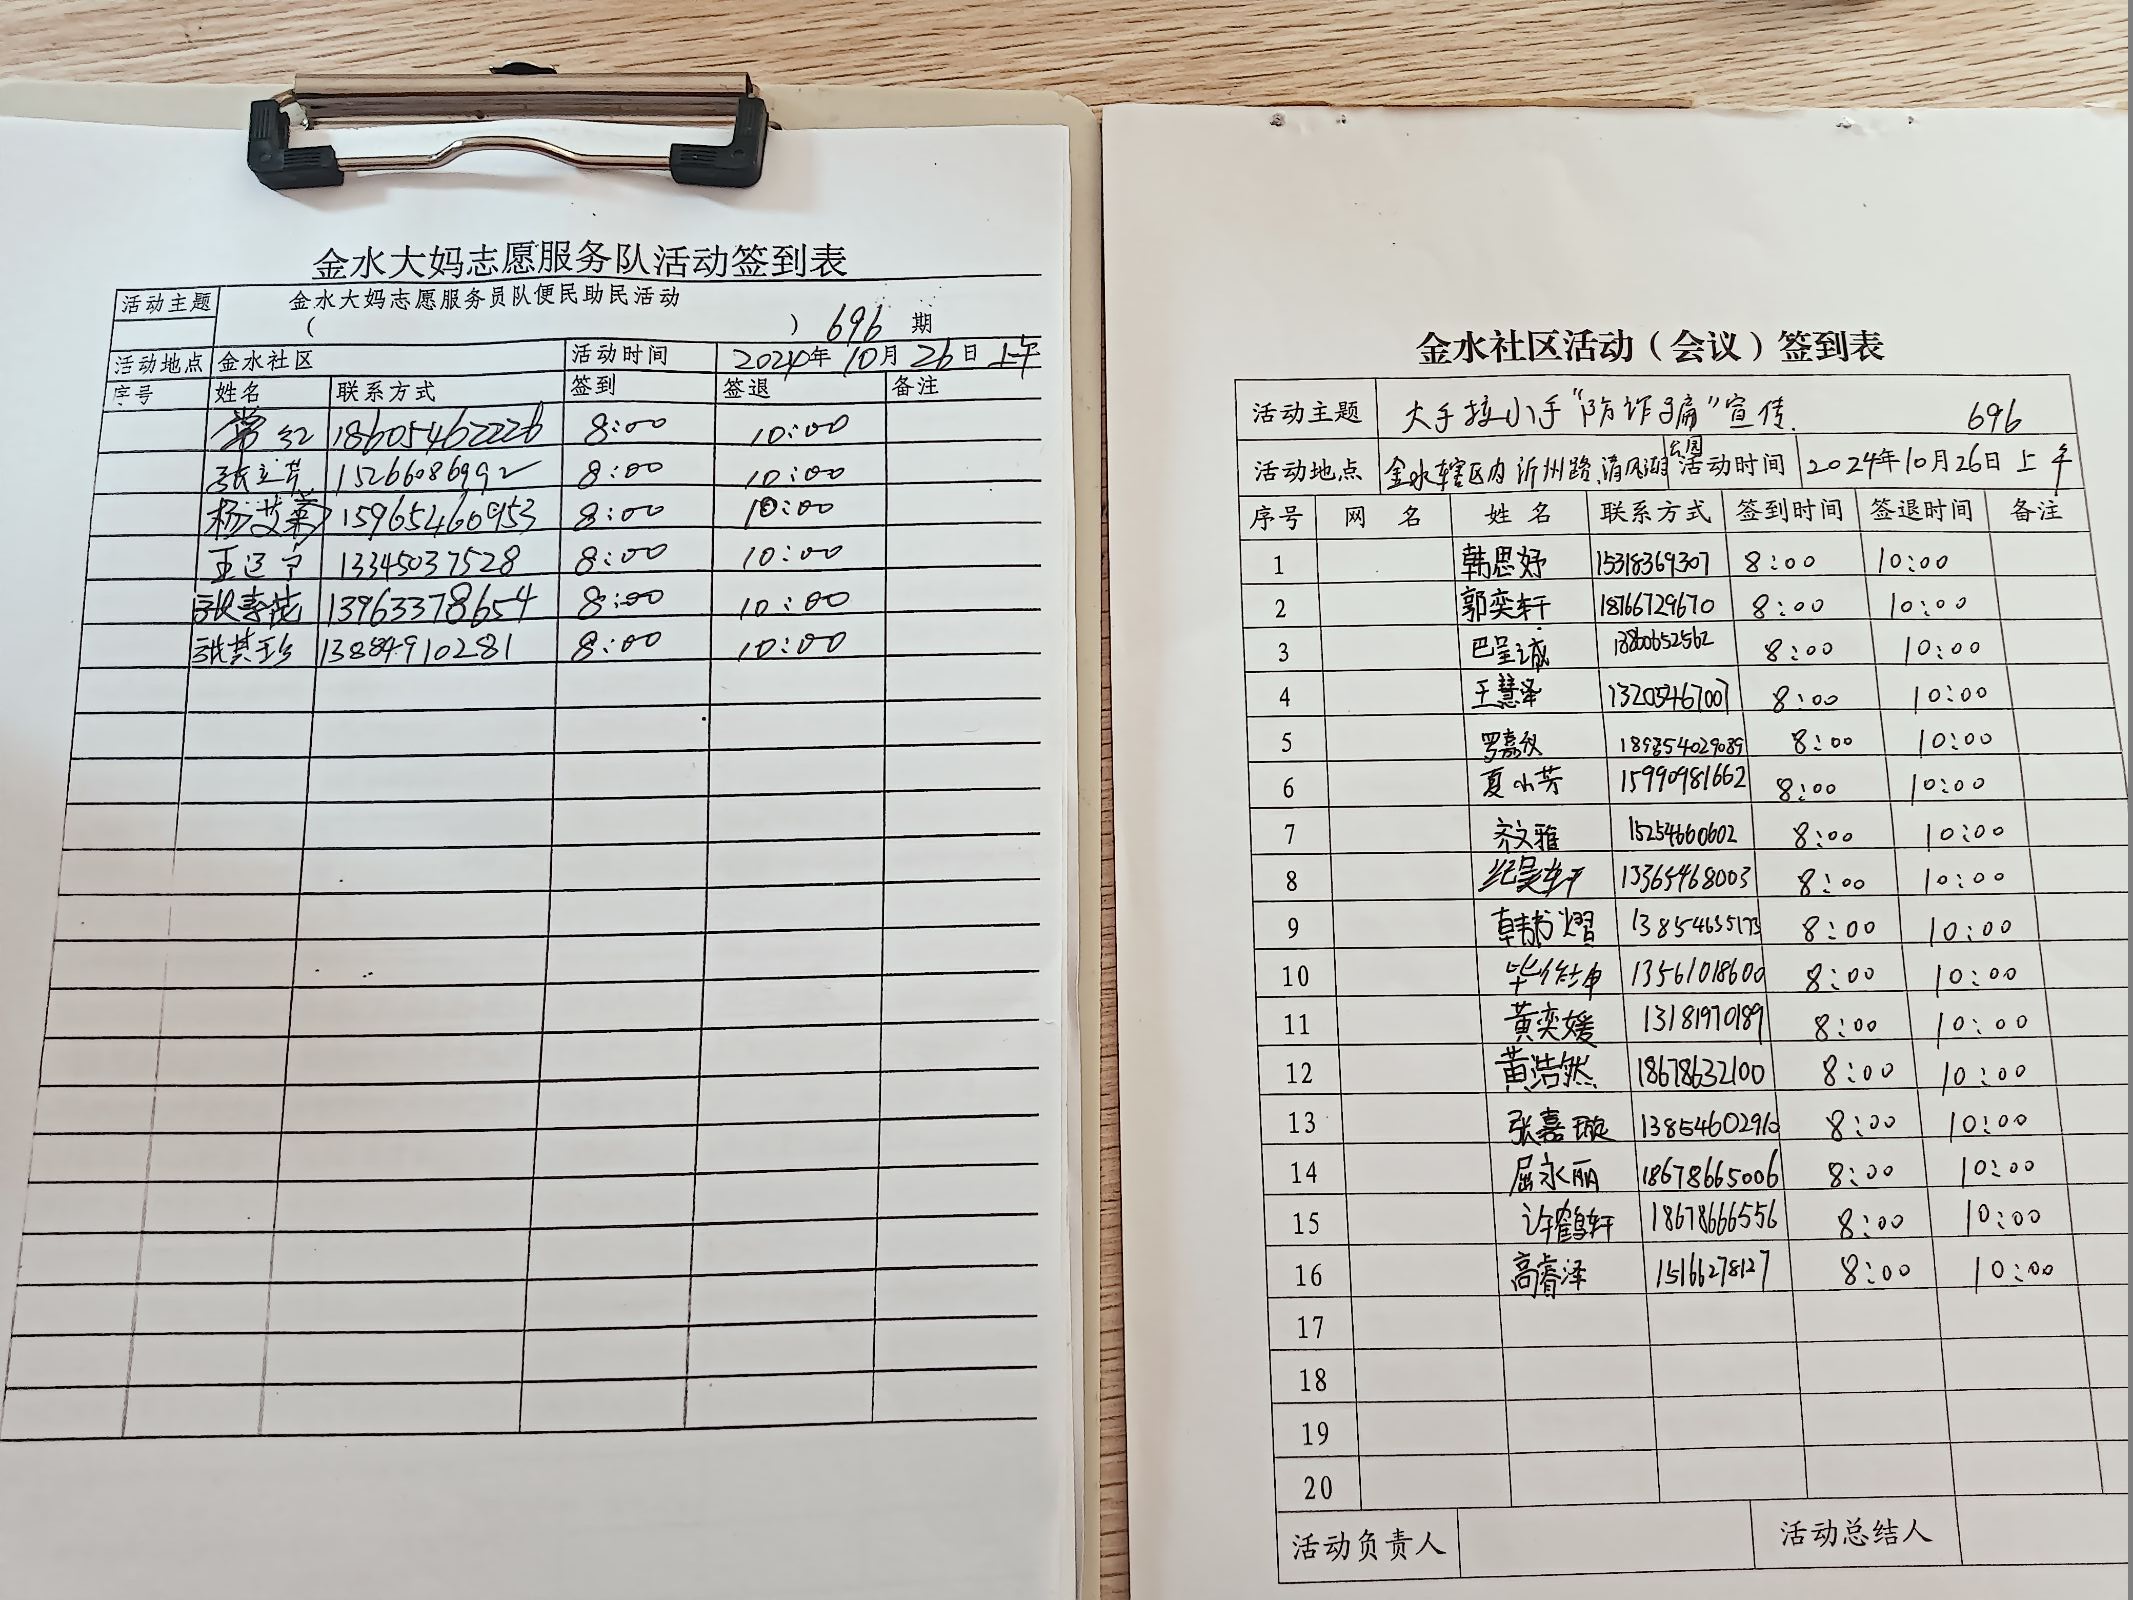 金水大妈志愿服务队活动签到表
活动主题 金水大妈志愿服务员队便民助民活动
( ) 696 期
活动地点 金水社区 活动时间 2024年10月26日 上午
序号 姓名 联系方式 签到 签退 备注
常红 18605462226 8:00 10:00
张立芹 15266086992 8:00 10:00
杨艾菊 15965460953 8:00 10:00
13345037528 8:00 10:00
张春花 13963378654 8:00 10:00
张其珍 13884910281 8:00 10:00
金水社区活动（会议）签到表
活动主题 大手拉小手“防诈骗”宣传. 696
活动地点 金水辖区内沂州路.清风湖公园 活动时间 2024年10月26日上午
序号 网 名 姓 名 联系方式 签到时间 签退时间 备注
1 韩思妤 15318369307 8:00 10:00
2 郭奕轩 18766729670 8:00 10:00
3 巴呈诚 13800652562 8:00 10:00
4 王慧泽 13205467007 8:00 10:00
5 罗嘉仪 189354029089 8:00 10:00
6 夏小芳 15990981662 8:00 10:00
7 齐文雅 15254660602 8:00 10:00
8 纪昊轩 13365468003 8:00 10:00
9 韩书熠 13854635173 8:00 10:00
10 13561018600 8:00 10:00
11 黄奕媛 13181970189 8:00 10:00
12 黄浩然 18678632100 8:00 10:00
13 张嘉璇 13854602910 8:00 10:00
14 屈永丽 18678665006 8:00 10:00
15 许鹤轩 18678666556 8:00 10:00
16 高睿泽 15166278127 8:00 10:00
17
18
19
20
活动负责人 活动总结人